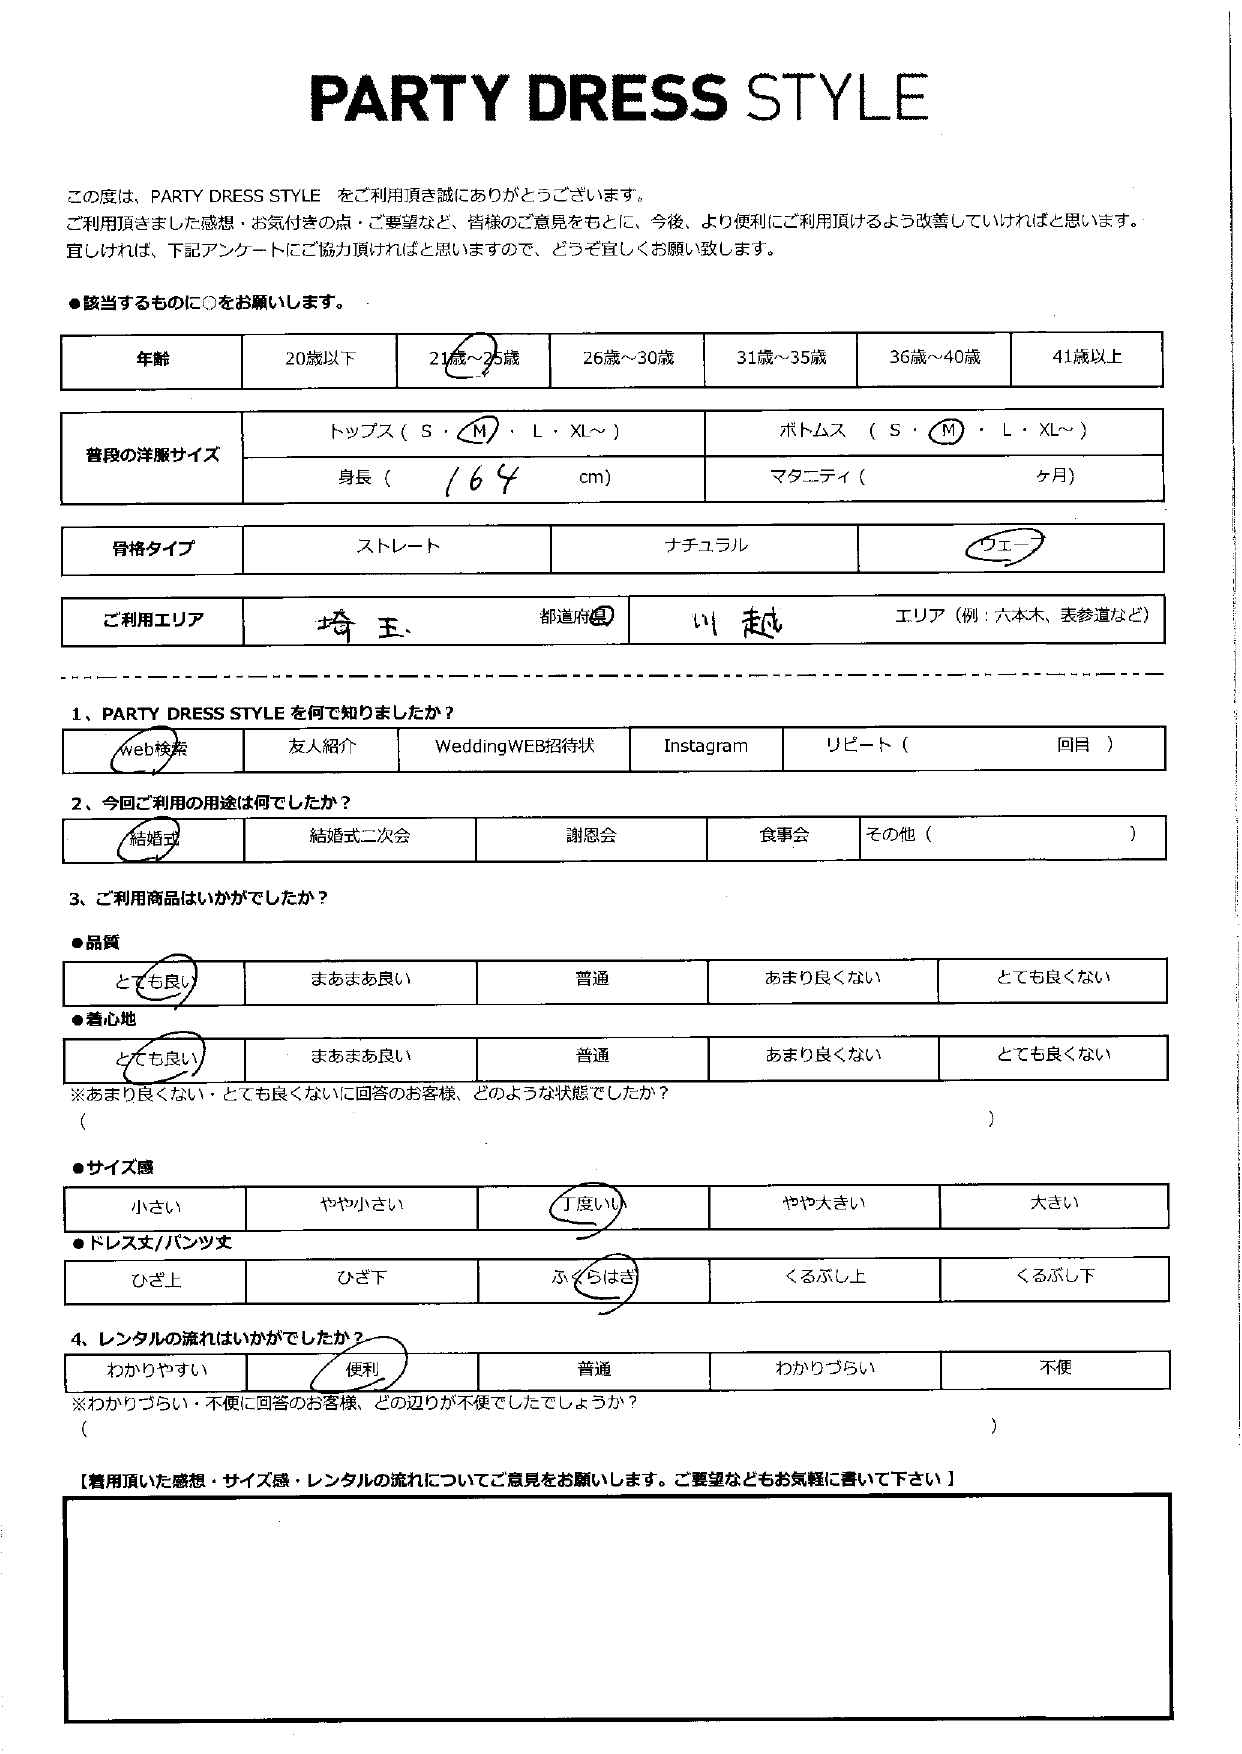 PARTY DRESS STYLE
この度は、PARTY DRESS STYLE をご利用頂き誠にありがとうございます。
ご利用頂きました感想・お気付きの点・ご要望など、皆様のご意見をもとに、今後、より便利にご利用頂けるよう改善していければと思います。
宜しければ、下記アンケートにご協力頂ければと思いますので、どうぞ宜しくお願い致します。
●該当するものに○をお願いします。
年齢 20歳以下 21歳～25歳 26歳～30歳 31歳～35歳 36歳～40歳 41歳以上
普段の洋服サイズ トップス ( S ・ M ・ L ・ XL～ ) ボトムス ( S ・ M ・ L ・ XL～ )
身長 ( 164 cm) マタニティ ( ヶ月)
骨格タイプ ストレート ナチュラル ウェーブ
ご利用エリア 埼玉 都道府県 川越 エリア（例：六本木、表参道など）
1、PARTY DRESS STYLE を何で知りましたか？
web検索 友人紹介 WeddingWEB招待状 Instagram リピート ( 回目 )
2、今回ご利用の用途は何でしたか？
結婚式 結婚式二次会 謝恩会 食事会 その他 ( )
3、ご利用商品はいかがでしたか？
●品質
とても良い まあまあ良い 普通 あまり良くない とても良くない
●着心地
とても良い まあまあ良い 普通 あまり良くない とても良くない
※あまり良くない・とても良くないに回答のお客様、どのような状態でしたか？
( )
●サイズ感
小さい やや小さい 丁度いい やや大きい 大きい
●ドレス丈/パンツ丈
ひざ上 ひざ下 ふくらはぎ くるぶし上 くるぶし下
4、レンタルの流れはいかがでしたか？
わかりやすい 便利 普通 わかりづらい 不便
※わかりづらい・不便に回答のお客様、どの辺りが不便でしたでしょうか？
( )
【着用頂いた感想・サイズ感・レンタルの流れについてご意見をお願いします。ご要望などもお気軽に書いて下さい 】